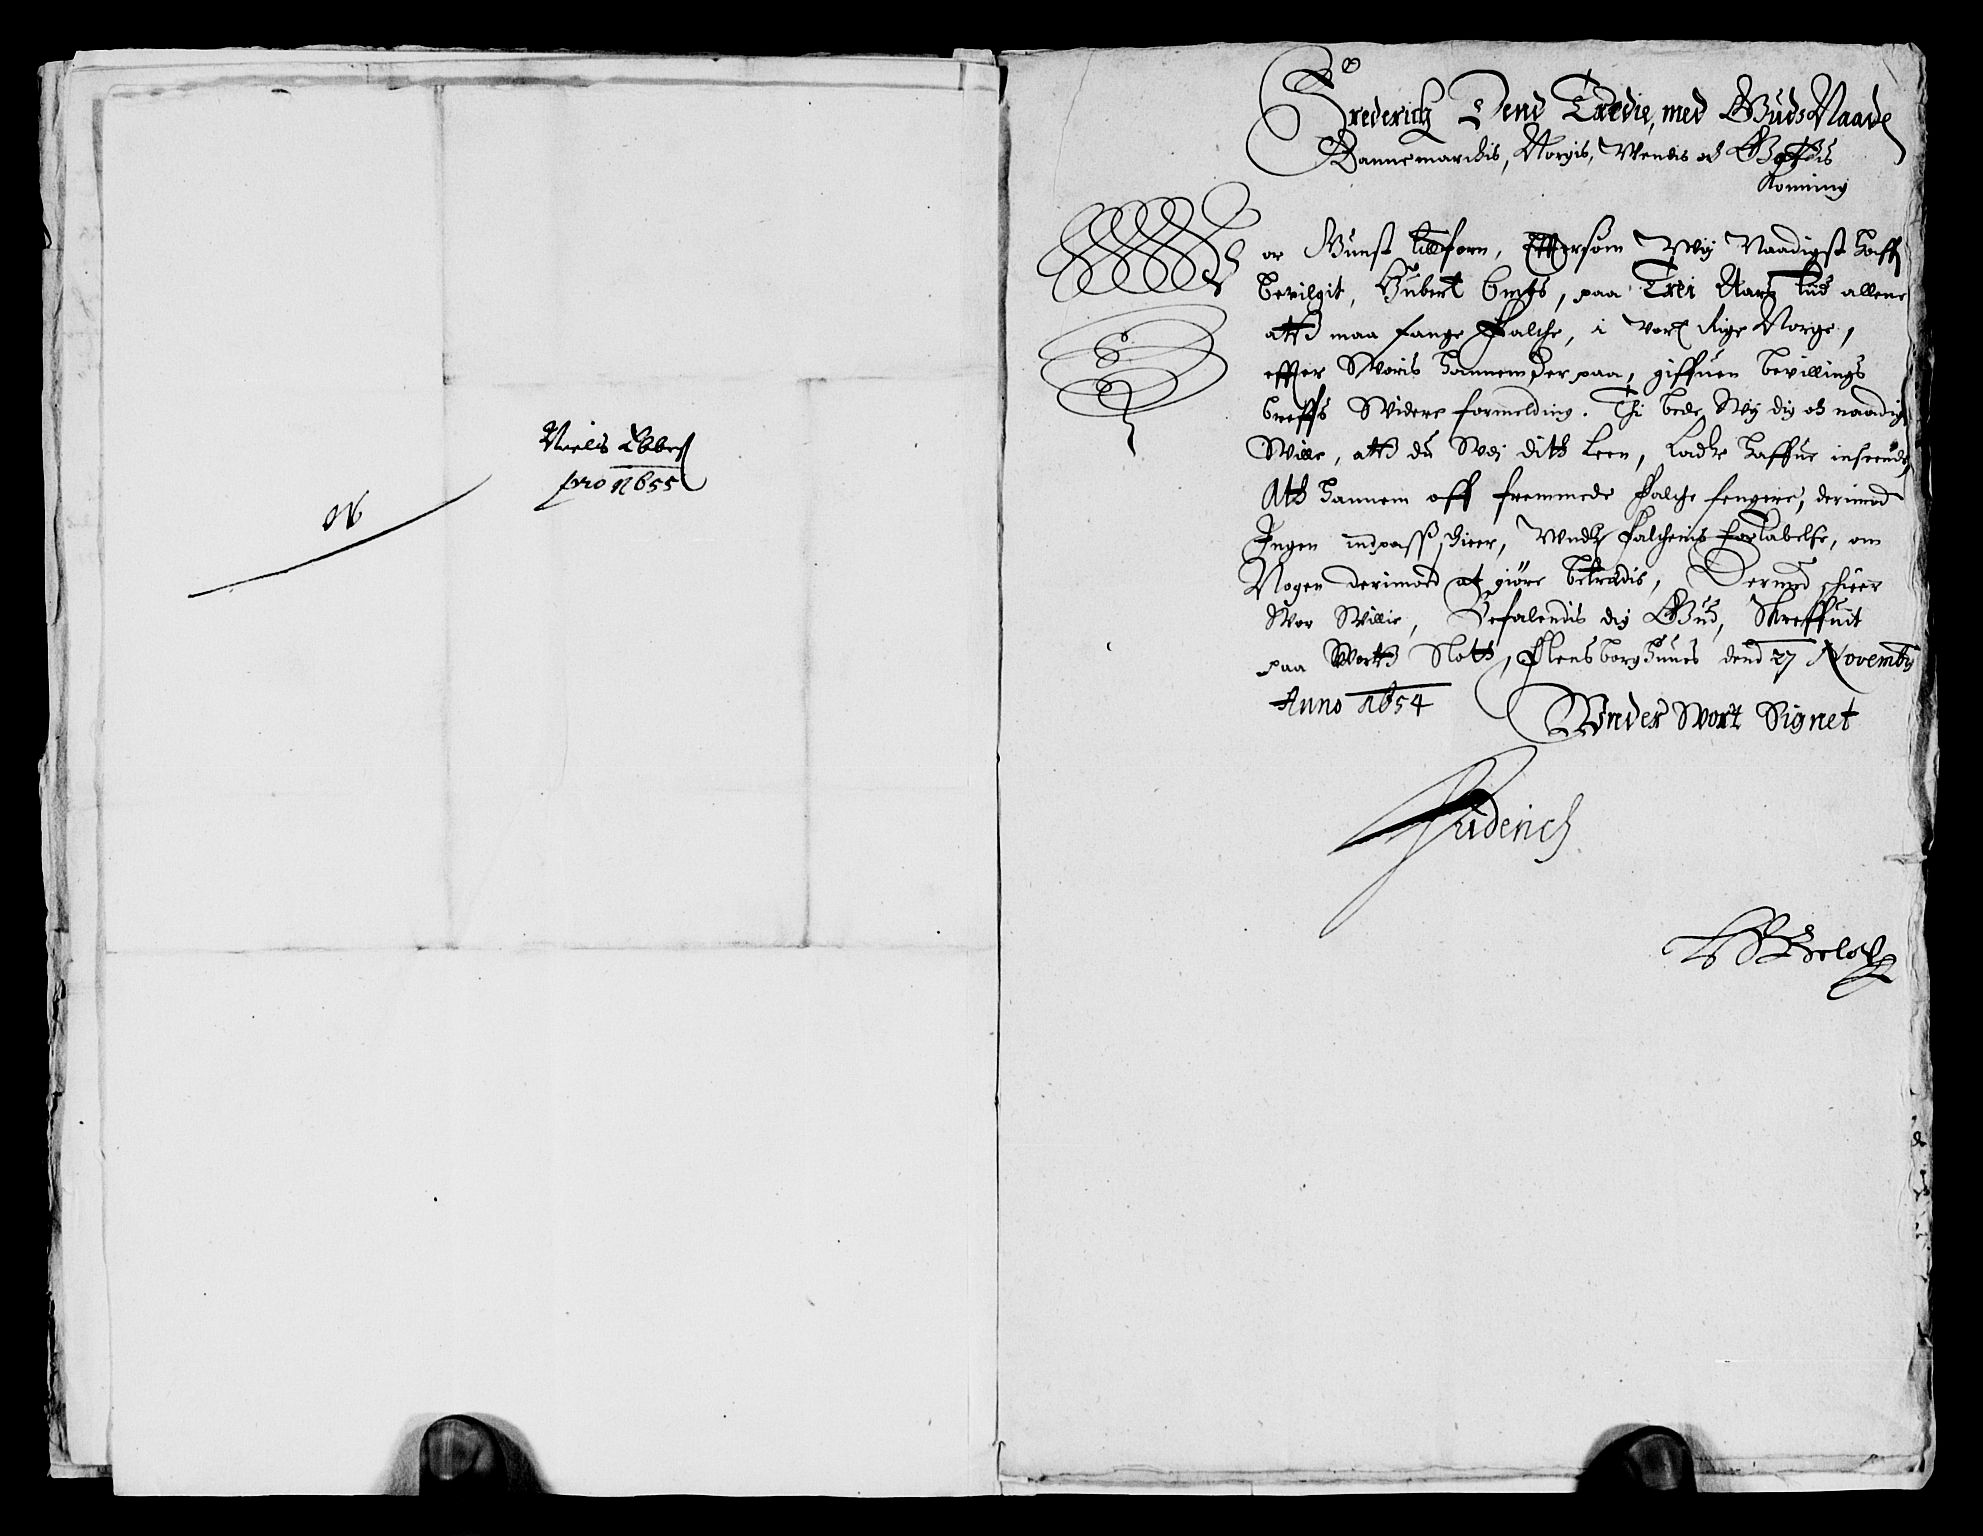 Niels Ebbes
pro 1655
Frederich Dend Tredie, med Guds Naade
Dannemarckis, Norgis, Wendis och Gottis
Konning
Vor Gunst tilforn, Efftersom Wij Naadigst haffr
bevilgit, Hubert, paa Trei Aars tid allene
att maa fange Falche, i vort Rige Norge,
effter Woris hannem der paa, giffuen bevillings
breffs Widere formelding. Thi bede Wij dig och naadigst
Wille, att du Wdi dith Leen, Lader haffue inseende
Ath hannem aff fremmede Falche fengere, derimod
Ingen indpass scheer, Wnder Falchenis fortabelse, om
Nogen derimod at giöre betredis, Dermed scheer
Wor Willie, Befalendis dig Gud, Skreffuit
paa Wort Slott, Flensborghuus dend 27 Novemb:
Anno 1654
Wnder Wort Signet
Friderich